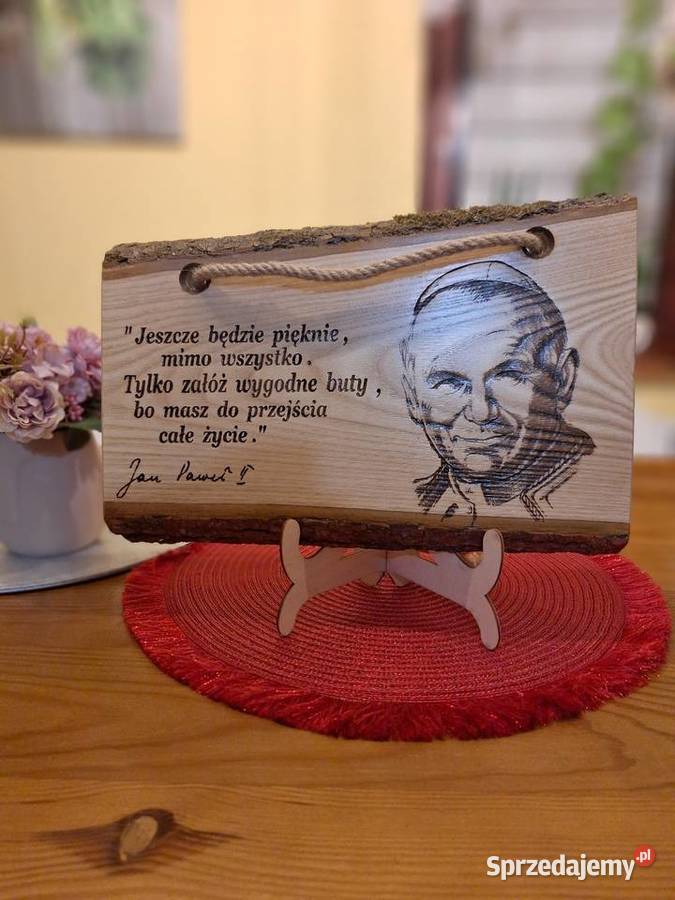 "Jeszcze będzie pięknie,
mimo wszystko.
Tylko załóż wygodne buty,
bo masz do przejścia
całe życie."
Jan Paweł II
Sprzedajemy.pl